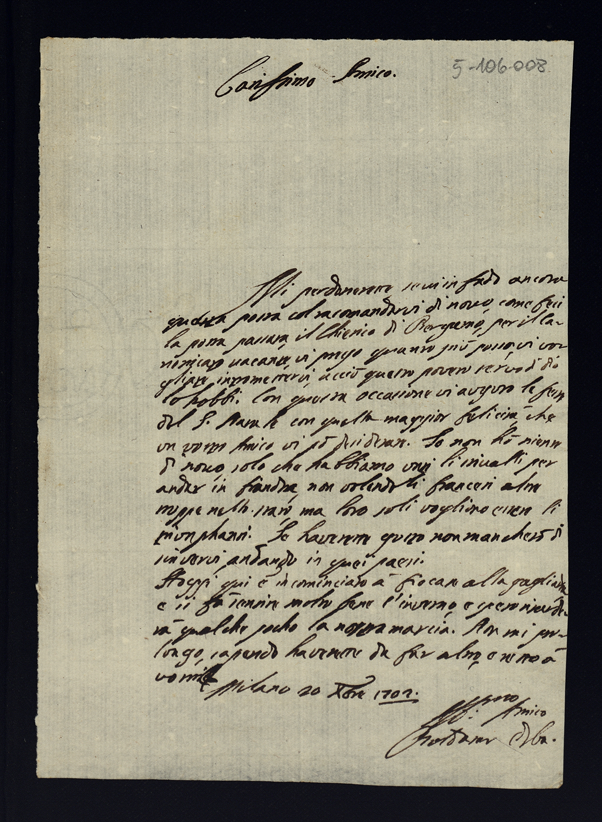 Carissimo Amico.
5-106-008
Mi perdonerete se vi infado ancora
questa posta col racomandarvi di novo, come feci
la posta passata il Chierico di Bergamo, per il Ca-
nonicato vacante, vi prego quanto più posso, vi vo-
gliate intromettervi acciò questo povero servo di dio
lo hobbi. Con questa occasione vi auguro le feste
del S. Natale con quella maggior felicità che
un vostro Amico vi può desiderare. Io non hò niente
di novo, solo che habbiamo li invalli per
andar in fiandra, non volendo li francesi altre
truppe nello stato ma loro soli vogliono essere li
triomphanti. Se haverete gusto non mancherò di
scrivervi andando in quei paesi.
Hoggi qui è incominciato à fiocar alla gagliarda
e si fà sentire molto forte l'inverno, e
rà qualche pocho la nostra marcia. Non mi pro-
longo, sapendo haverete da far altro, e resto à
voi
Milano 20 Xbre 1702.
Amico